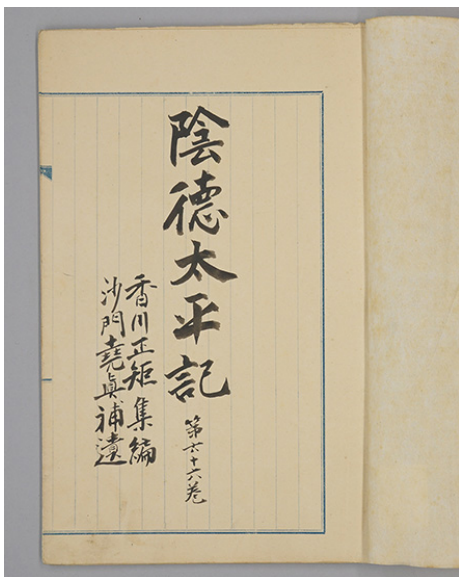 陰德太平記
第六十六巻
香川正矩集編
沙門堯眞補遺